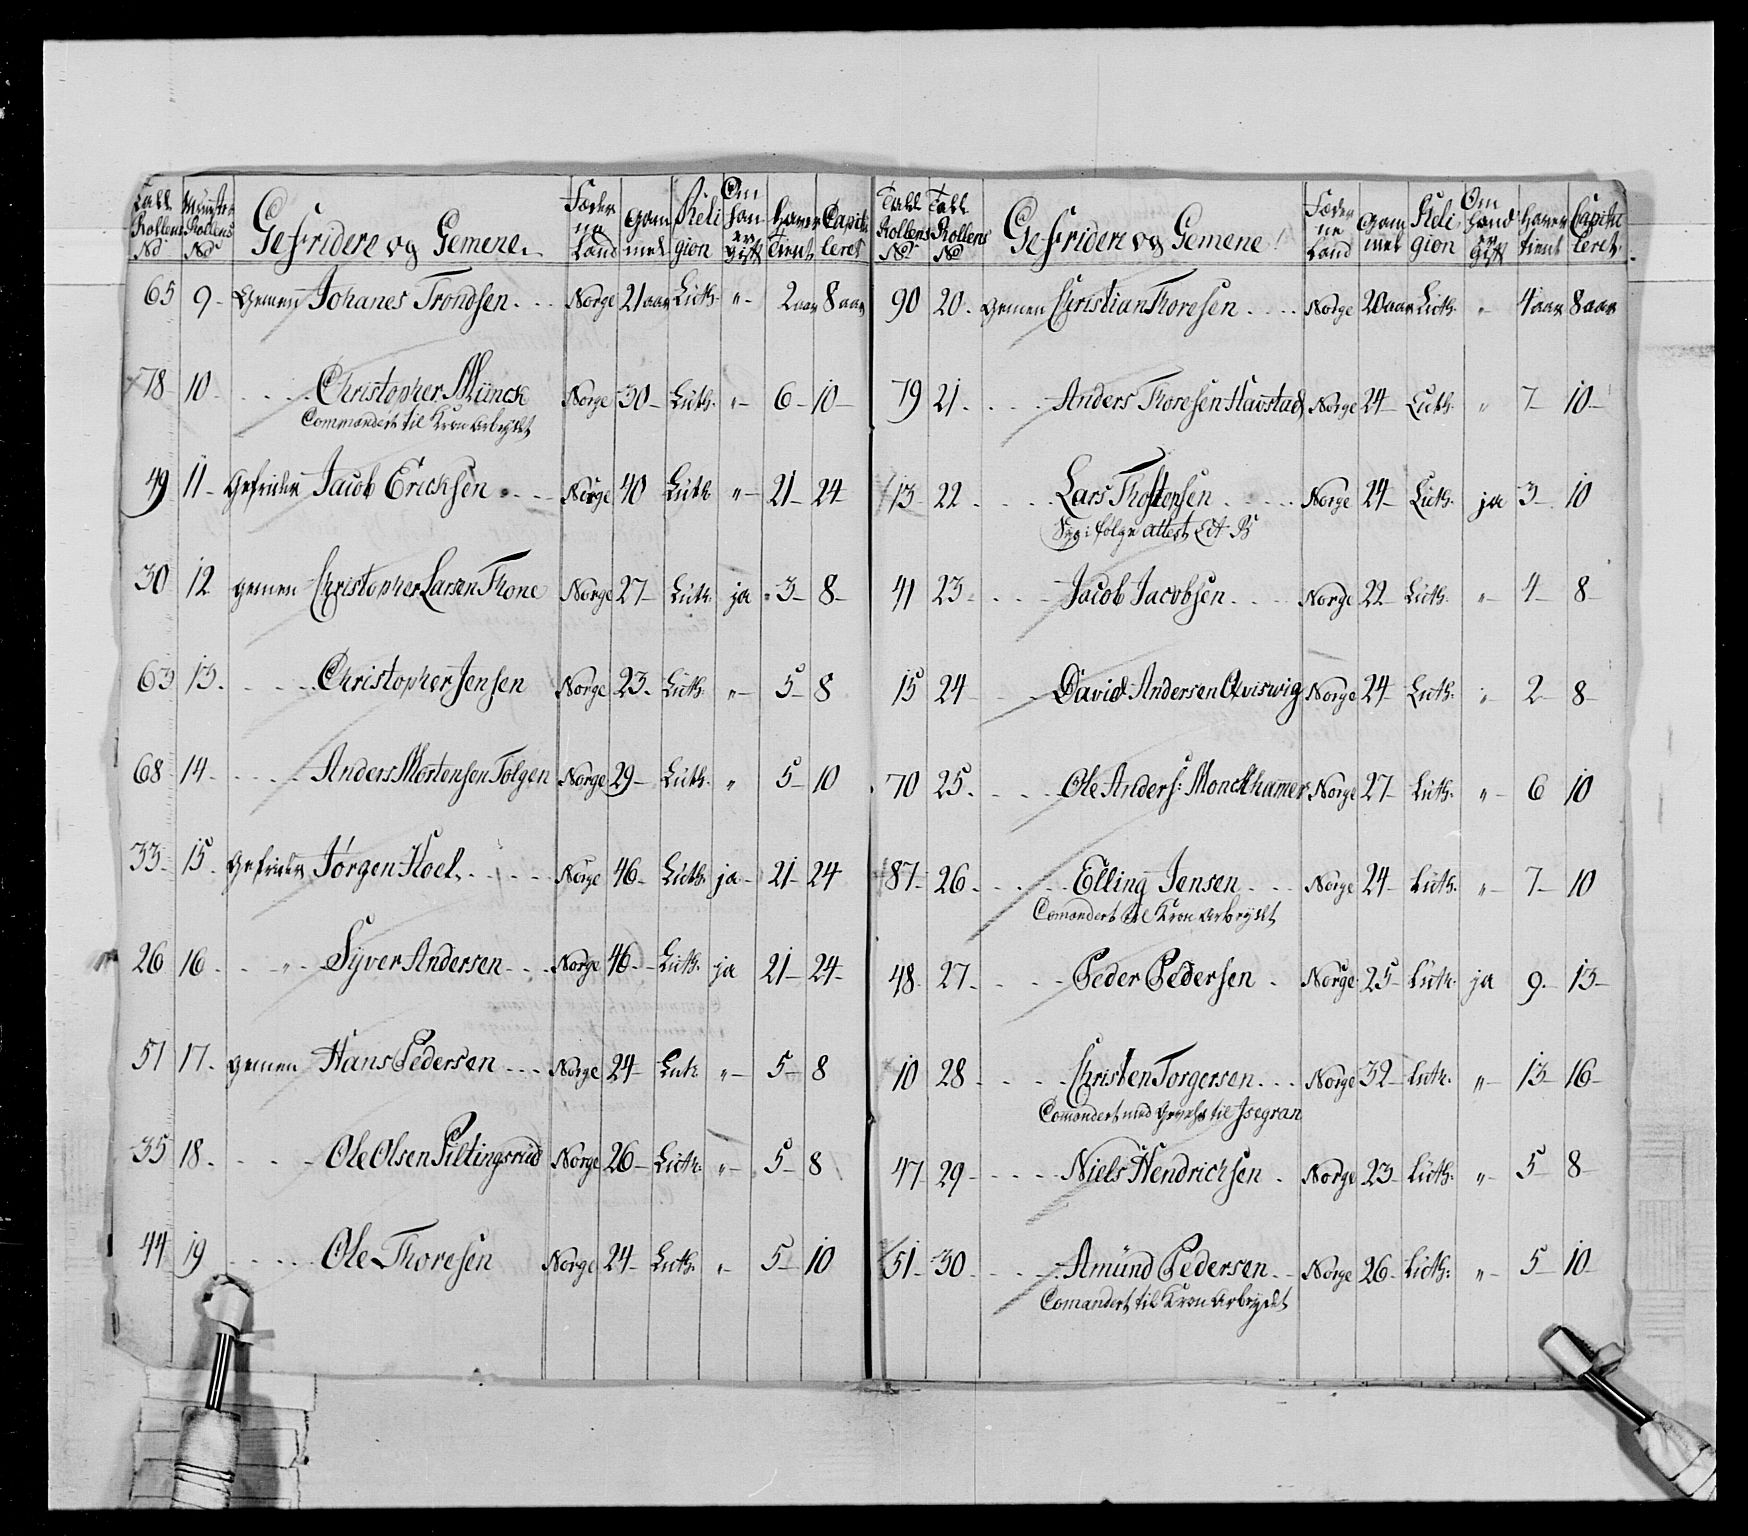 Tall Rollens No | Münster Rollens No | Gefridere og Gemene. | Fæder ne Land | Gam mel | Reli gion | Om han er gift | haver tient | Capitu leret
65 | 9 - | Gemen Johanes Trondsen . . . | Norge | 21 aar | Luth. | " - | 2 aar | 8 aar
78 | 10 - | . . . . Christopher Münck | Norge | 30 - | Luth. | " - | 6 - | 10 -
Commandert til Kron Arbeydet
49 | 11 - | Gefrider Jacob Ericksen . . . | Norge | 40 | Luth | " - | 21 - | 24
30 | 12 | gemen Christopher Larsen Thone | Norge | 27 - | Luth. | ja | 3 - | 8 -
63 | 13 . | . . . . Christopher Jensen | Norge | 23 - | Luth | " - | 5 - | 8
68 | 14 - | . . . . Anders Mortensen Tolgen | Norge | 29 - | Luth. | " | 5 - | 10
33 - | 15 . | Gefrider Jørgen Hoel . . . . | Norge | 46 - | Luth. | ja - | 21 - | 24
26 | 16 - | . . " . Syver Andersen . . . | Norge | 46 - | Luth. | ja | 21 - | 24 -
51 | 17 . | gemen Hans Pedersen . . . | Norge | 24 - | Luth | " - | 5 - | 8
35 | 18 . | . . . . Ole Olsen Piltingsrud | Norge | 26 - | Luth. | " - | 5 - | 8
44 | 19 | . . . . Ole Thoresen | Norge | 24 - | Luth. | " - | 5 - | 10
Tall Rollens No | Tall Rollens No | Gefridere og Gemene | Fæder ne Land | Gam mel | Reli gion | Om hand er gift | haver tient | Capitu leret
90 | 20 . | gemen Christian Thoresen . . . . | Norge | 20 aar | Luth. | " | 4 aar | 8 aar
79 | 21 . | . . . Anders Thoresen Havstad | Norge | 24 - | Luth. | " | 7 - | 10 -
13 - | 22 . | . . . Lars Thostensen . . . . | Norge | 24 - | Luth. | ja | 3 - | 10
Syg i følge attest Lit B
41 | 23 - | . . . Jacob Jacobsen . . . | Norge | 22 - | Luth. | " - | 4 - | 8 -
15 | 24 | . . . David Andersen Qviswig | Norge | 24 - | Luth. | " - | 2 - | 8 -
70 | 25 . | . . . Ole Anders: Monckhamer | Norge | 27 - | Luth. | " - | 6 | 10
87 - | 26 . | . . . . Elling Jensen . . . | Norge | 24 - | Luth. | " - | 7 - | 10
Comandert til Kron Arbeydet
48 - | 27 - | . . . Peder Pedersen . | Norge | 25 - | Luth. | ja | 9 . - | 13 -
10 | 28 - | . . . . Christen Torgersen . . . | Norge | 32 - | Luth. | " - | 13 - | 16 -
Comandert med Gevehr til Isegran
47 - | 29 - | . . . . Niels Hendrichsen . | Norge | 23 - | Luth. | " - | 5 - | 8 -
51 - | 30 - | . . . . Amund Pedersen . . | Norge | 26 - | Luth: | " - | 5 - | 10 -
Comandert til Kron Arbeydet